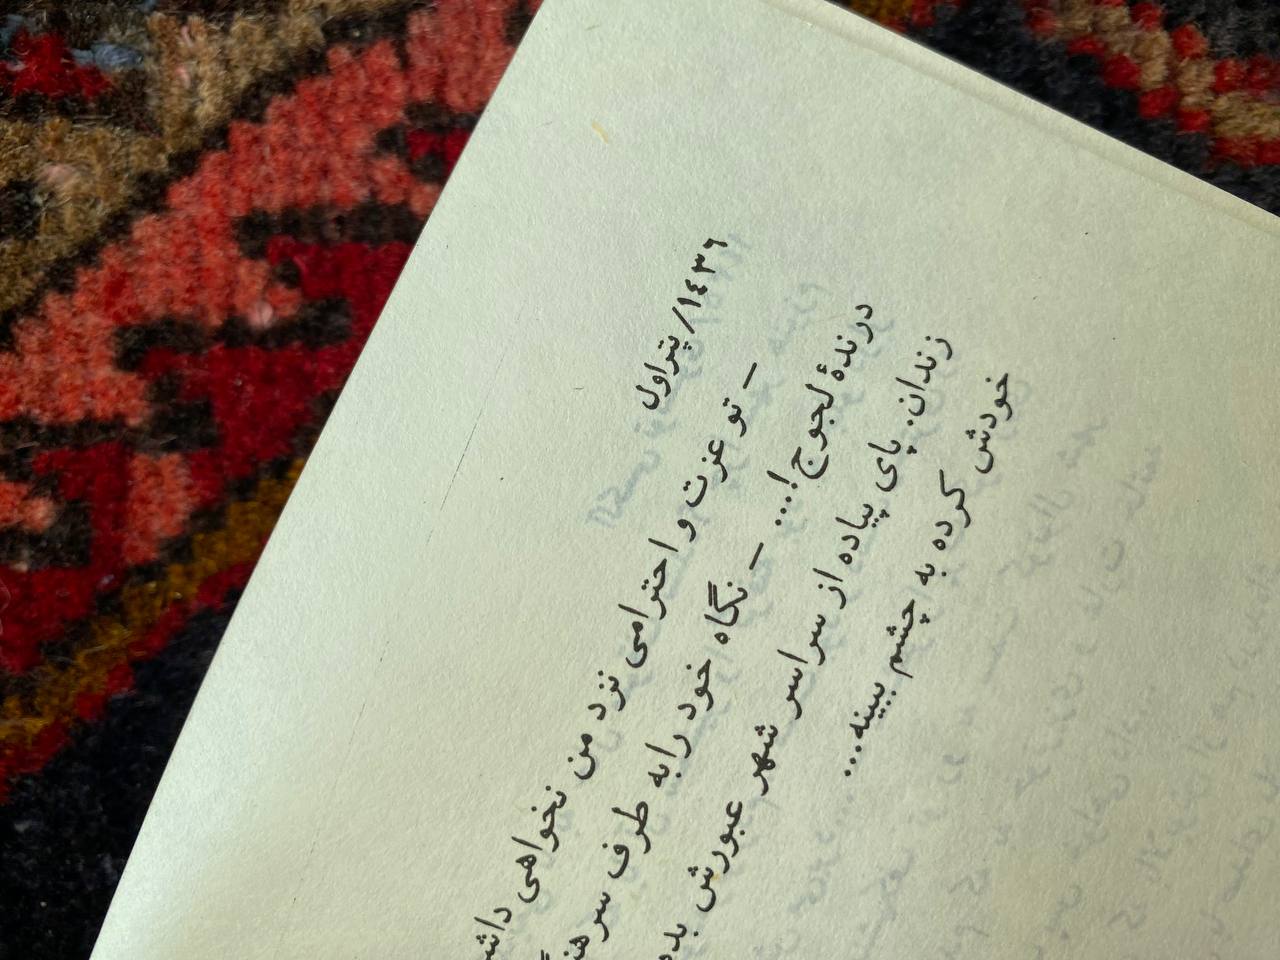 ۱٤۳۶/پتراول
– تو عزت و احترامی نزد من نخواهی
درندهٔ لجوج!... – نگاه خود را به طرف
زندان. پای پیاده از سراسر شهر عبورش
خودش کرده به چشم ببینه...